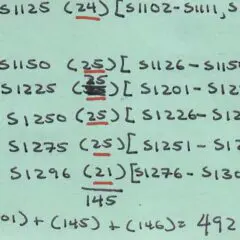 S1125 (24) [S1102-S1111, S
S1150 (25) [ S1126-S115
25
S1225 [ S1201-S12
S1250 (25) [ S1226-S12
S1275 (25) [ S1251-S12
S1296 (21) [S1276-S130
145
01) + (145) + (146) = 492